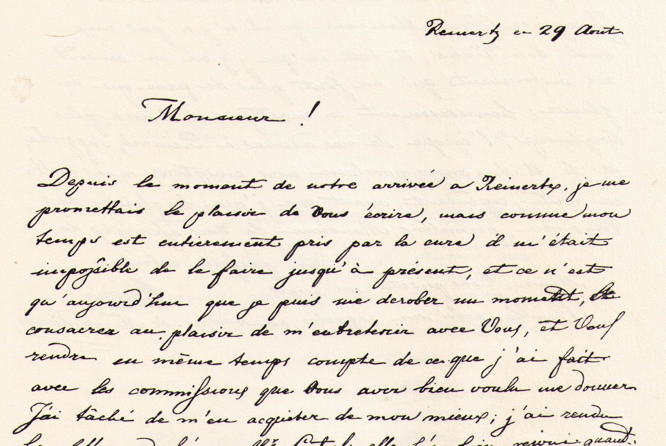 Reinertz ce 29 Août.
Monsieur !
Depuis le moment de notre arrivée a Reinertz, je me
promettais le plaisir de Vous écrire, mais comme mon
temps est entierement pris par la cure il m'était
impoßible de le faire jusqu'à présent, et ce n'est
qu'aujourd'hui que je puis me derober un moment,
consacrer au plaisir de m'entretenir avec Vous, et Vous
rendre en même temps compte de ce que j'ai fait
avec les commißions que Vous avez bien voulu me donner.
J'ai tâché de m'en acquiter de mon mieux; j'ai rendu